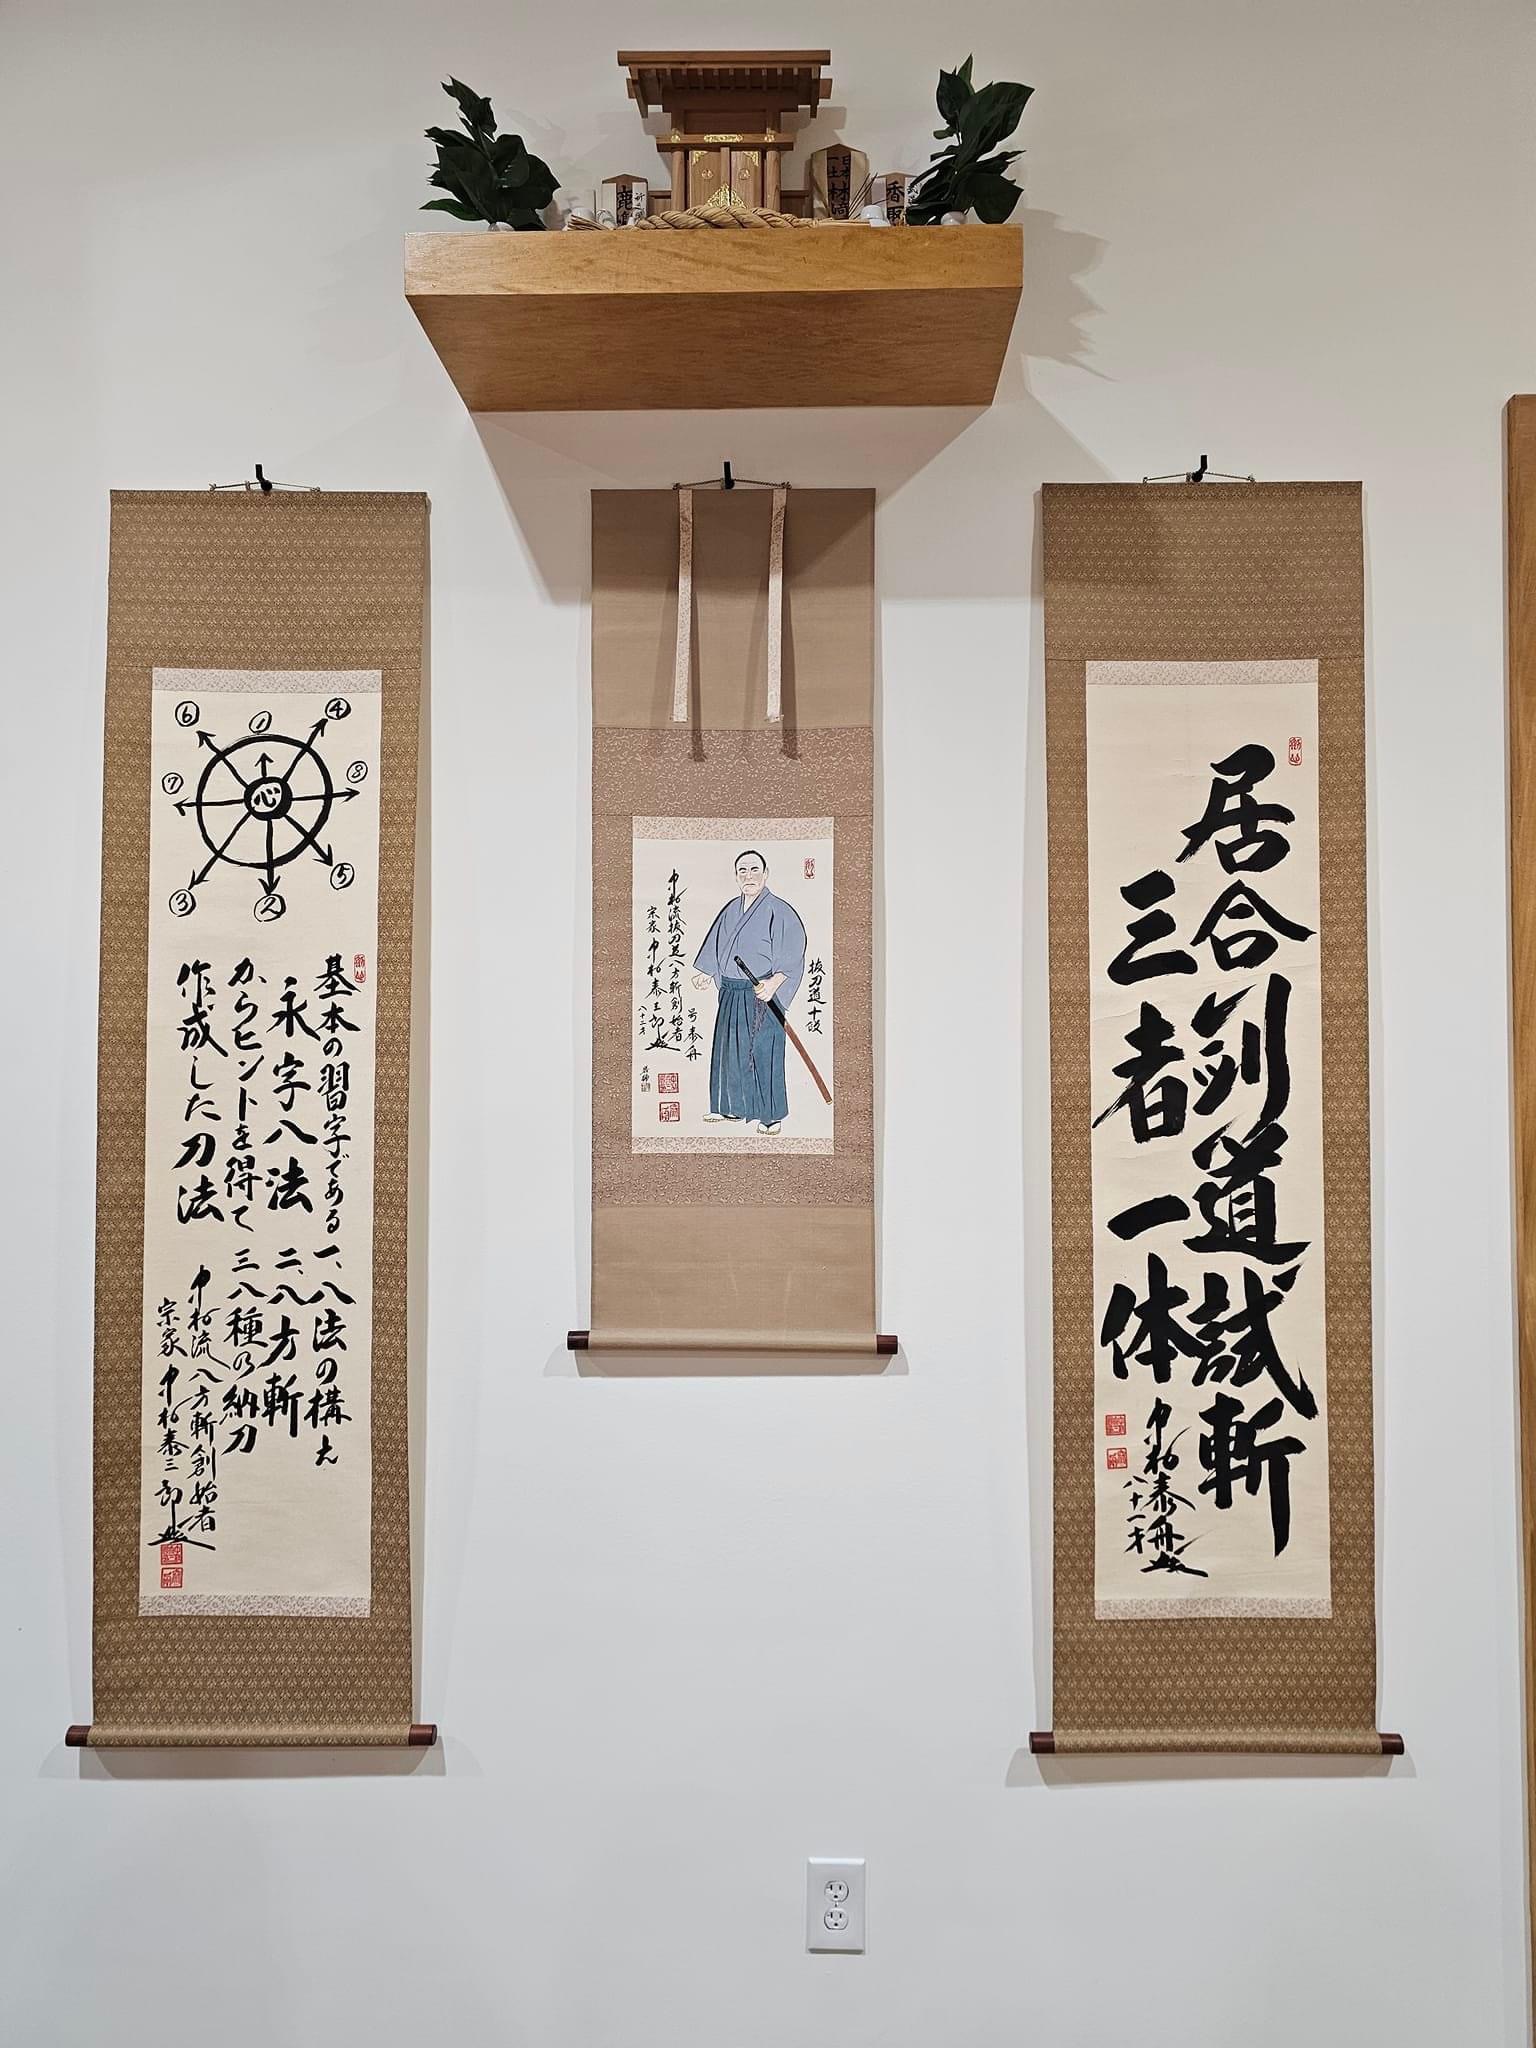 鹿島
日本
一士
香取
⑥
①
④
⑦
心
⑧
③
②
⑤
基本の習字である
永字八法
からヒントを得て
作成した刀法
一、八法の構え
二、八方斬
三八種の納刀
中村流八方斬創始者
宗家 中村泰三郎
抜刀道十段
号 泰舟
中村流抜刀道八方斬創始者
宗家 中村泰三郎
八十二才
居合剣道試斬
三者一体
中村泰舟
八十一才